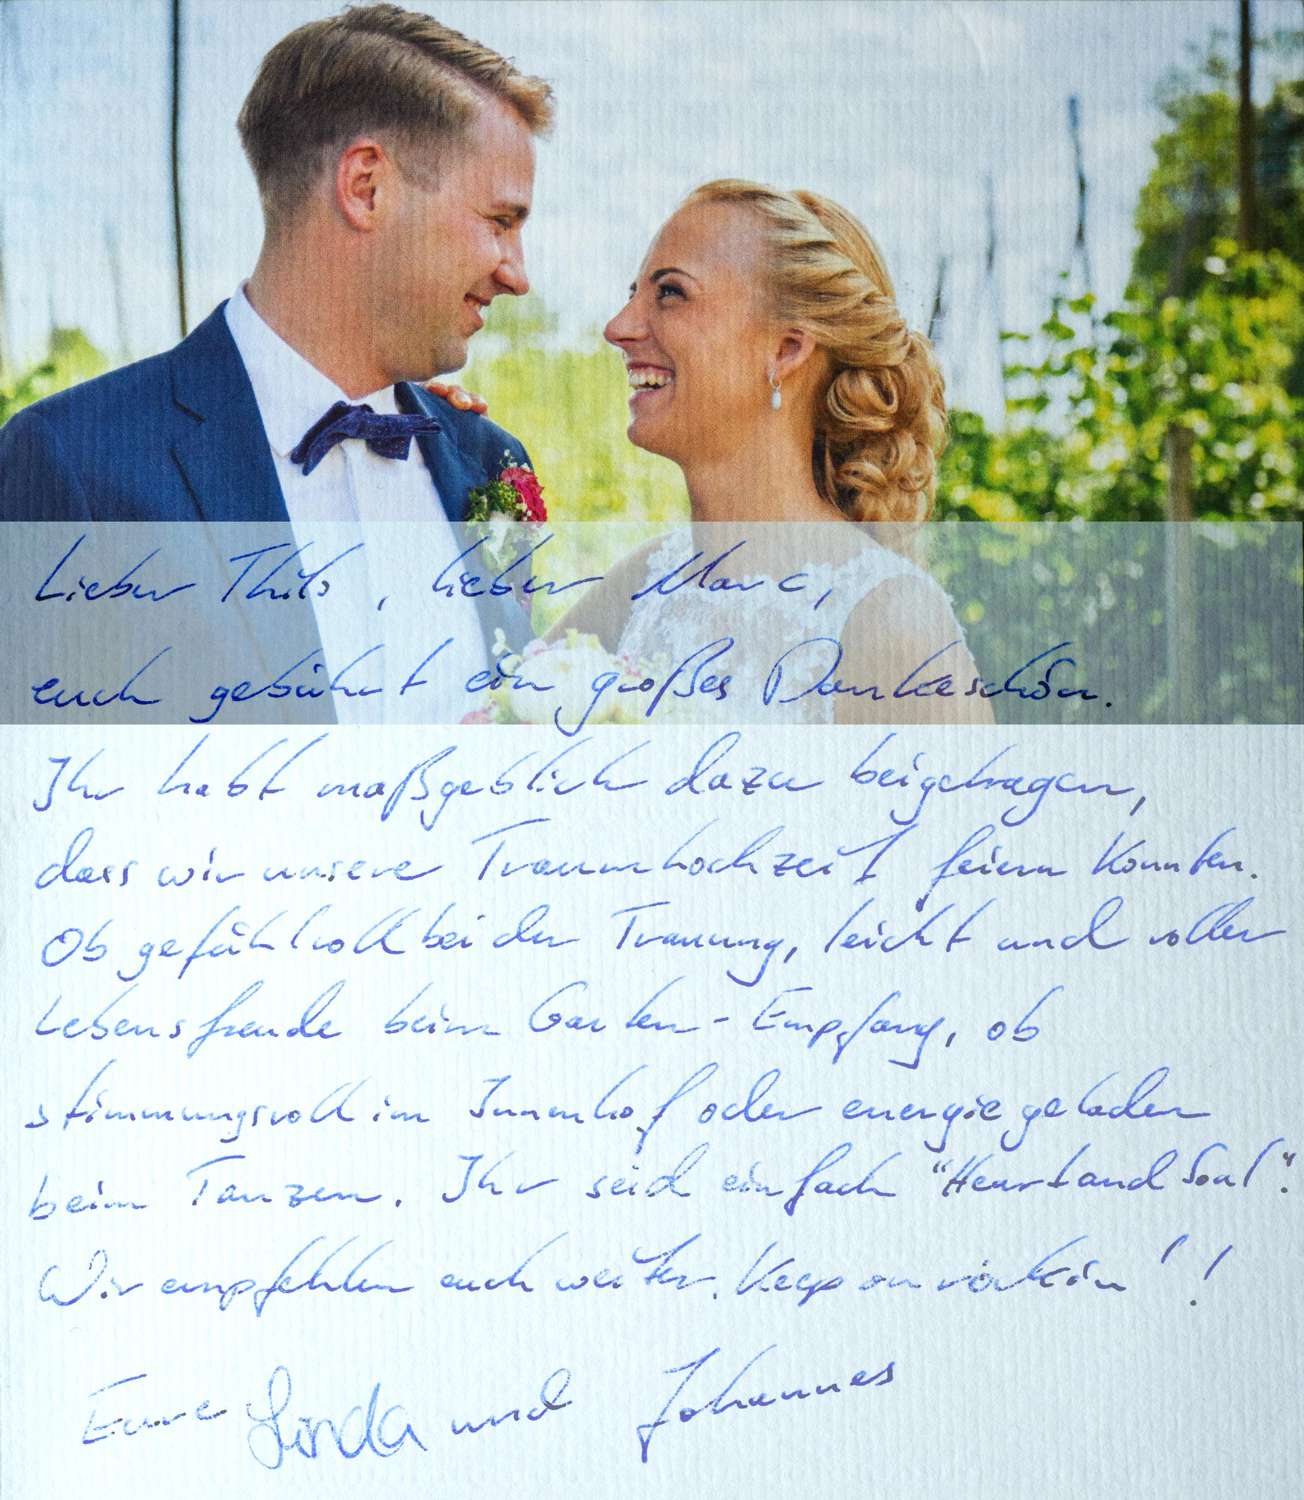 Lieber Thilo, lieber Marc,
euch gebührt ein großes Dankeschön.
Ihr habt maßgeblich dazu beigetragen,
dass wir unsere Traumhochzeit feiern konnten.
Ob gefühlvoll bei der Trauung, leicht und voller
Lebensfreude beim Garten-Empfang, ob
stimmungsvoll im Innenhof oder energiegeladen
beim Tanzen. Ihr seid einfach "Heart and Soul".
Wir empfehlen euch weiter. Keep on rockin'!
Eure Linda und Johannes